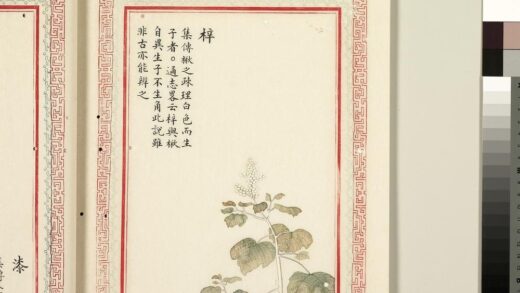 梓
集傳楸之疎理白色而生
子者。通志畧云梓與楸
自異生子不生角此說雖
非古亦能辨之
漆